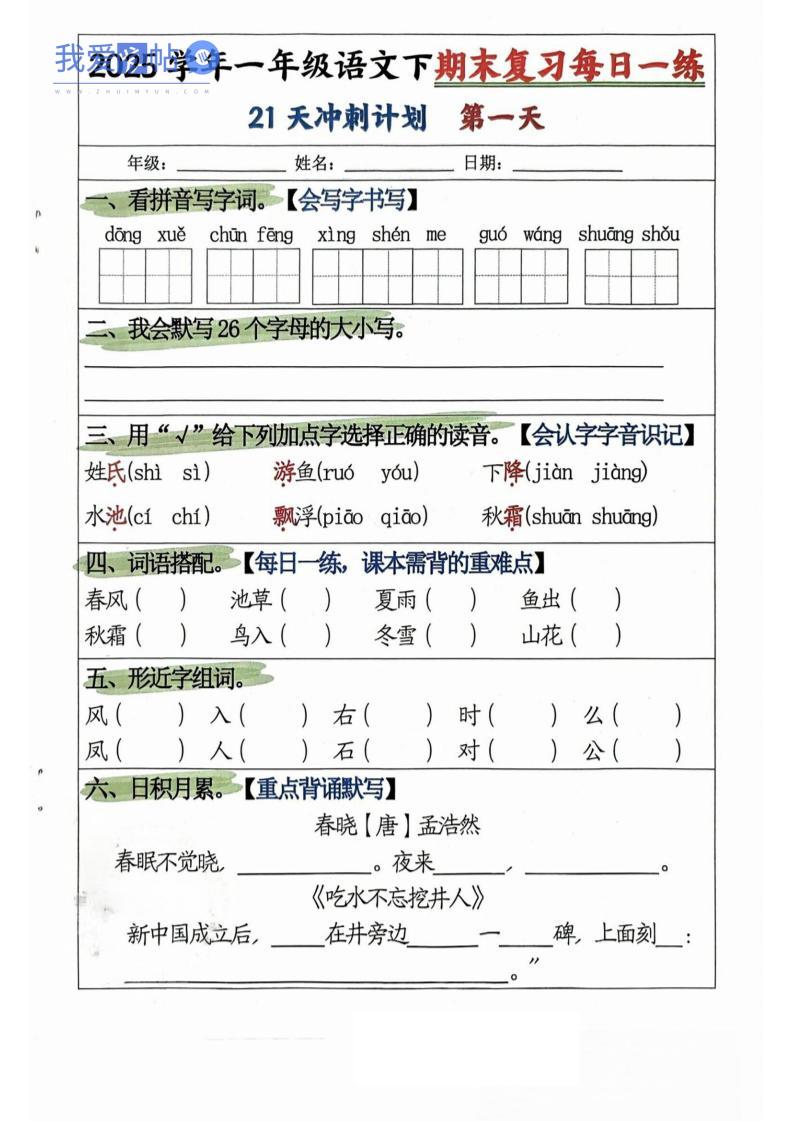 我爱追帖
WWW.ZHUIMYUN.COM
2025学年一年级语文下期末复习每日一练
21天冲刺计划 第一天
年级：__________ 姓名：__________ 日期：__________
一、看拼音写字词。【会写字书写】
dōng xuě chūn fēng xìng shén me guó wáng shuāng shǒu
二、我会默写26个字母的大小写。
三、用“√”给下列加点字选择正确的读音。【会认字字音识记】
姓氏(shì sì) 游鱼(ruó yóu) 下降(jiàn jiàng)
水池(cí chí) 飘浮(piāo qiāo) 秋霜(shuān shuāng)
四、词语搭配。【每日一练，课本需背的重难点】
春风（ ） 池草（ ） 夏雨（ ） 鱼出（ ）
秋霜（ ） 鸟入（ ） 冬雪（ ） 山花（ ）
五、形近字组词。
风（ ） 入（ ） 右（ ） 时（ ） 么（ ）
凤（ ） 人（ ） 石（ ） 对（ ） 公（ ）
六、日积月累。【重点背诵默写】
春晓【唐】孟浩然
春眠不觉晓，__________。夜来______，__________。
《吃水不忘挖井人》
新中国成立后，____在井旁边______一____碑，上面刻__：
______________________________。”